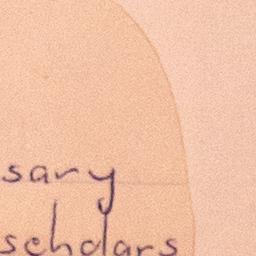 sary
scholars